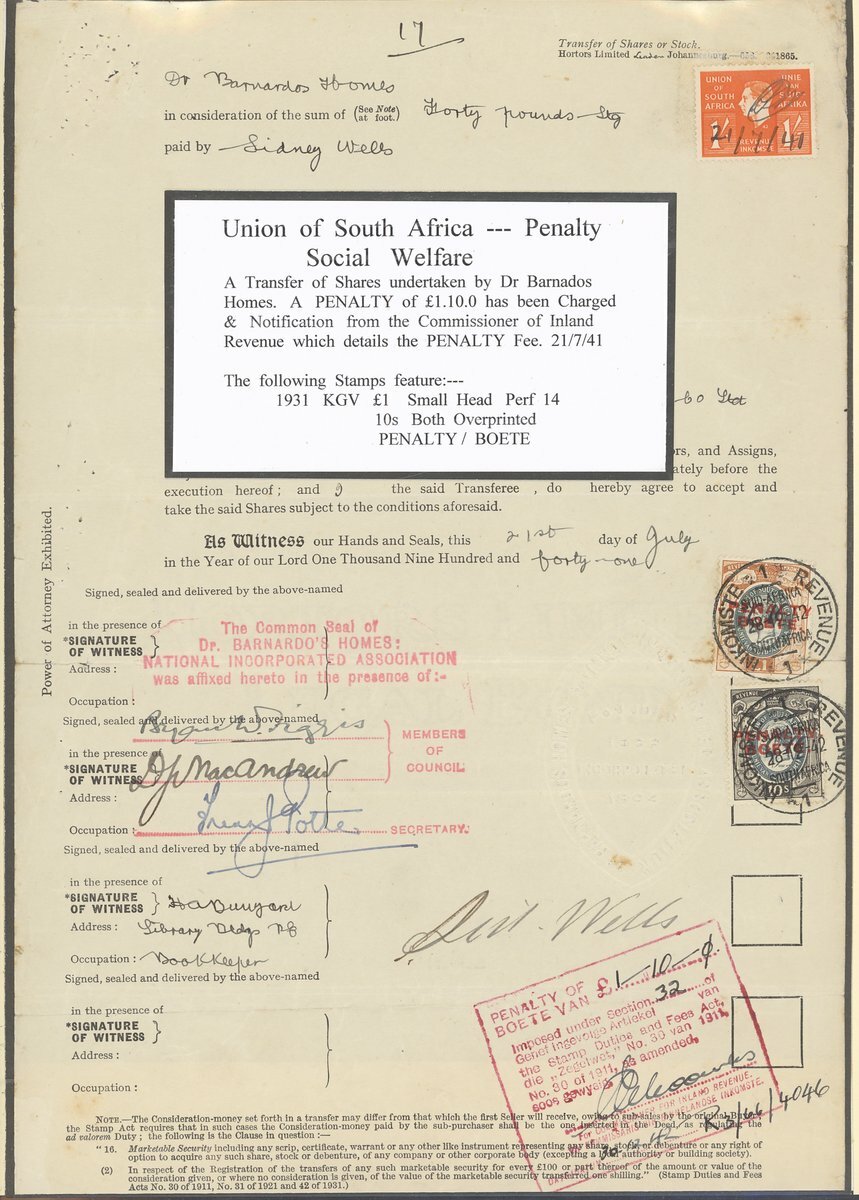 17
Transfer of Shares or Stock.
Hortors Limited London Johannesburg.
Dr Barnardos Homes
in consideration of the sum of (See Note at foot.) Forty pounds Stg
paid by Sidney Wells
UNION OF SOUTH AFRICA
UNIE VAN SUID AFRIKA
1/- 1/-
REVENUE
INKOMSTE
21/7/41
Union of South Africa --- Penalty
Social Welfare
A Transfer of Shares undertaken by Dr Barnados
Homes. A PENALTY of £1.10.0 has been Charged
& Notification from the Commissioner of Inland
Revenue which details the PENALTY Fee. 21/7/41
The following Stamps feature:---
1931 KGV £1 Small Head Perf 14
10s Both Overprinted
PENALTY / BOETE
ors, and Assigns,
ately before the
execution hereof; and I the said Transferee , do hereby agree to accept and
take the said Shares subject to the conditions aforesaid.
As Witness our Hands and Seals, this 21st day of July
in the Year of our Lord One Thousand Nine Hundred and forty-one
Power of Attorney Exhibited.
Signed, sealed and delivered by the above-named
in the presence of
*SIGNATURE OF WITNESS }
Address :
Occupation :
The Common Seal of
Dr. BARNARDO'S HOMES:
NATIONAL INCORPORATED ASSOCIATION
was affixed hereto in the presence of:-
INKOMSTE 1 REVENUE 1
PENALTY
BOETE
SUID-AFRIKA
SOUTH AFRICA
Signed, sealed and delivered by the above-named
in the presence of
*SIGNATURE OF WITNESS } D MacAndrew
MEMBERS
OF
COUNCIL
Address :
Occupation :
SECRETARY.
INKOMSTE REVENUE 1
PENALTY
BOETE
SOUTH AFRICA
10s
Signed, sealed and delivered by the above-named
in the presence of
*SIGNATURE OF WITNESS }
Address : Library Bldgs
Occupation : Bookkeeper
Sid. Wells
Signed, sealed and delivered by the above-named
in the presence of
*SIGNATURE OF WITNESS }
Address :
Occupation :
PENALTY OF
BOETE VAN £1-10-0
Imposed under Section 32 of
Gehef ingevolge Artiekel van
the Stamp Duties and Fees Act,
die „Zegelwet," No. 30 van 1911,
No. 30 of 1911, as amended.
soos gewysig.
FOR COMMISSIONER FOR INLAND REVENUE.
BINNELANDSE INKOMSTE.
R3/66/4046
NOTE.—The Consideration-money set forth in a transfer may differ from that which the first Seller will receive, owing to sub-sales by the original Buyer
the Stamp Act requires that in such cases the Consideration-money paid by the sub-purchaser shall be the one inserted in the Deed, as regulating the
ad valorem Duty ; the following is the Clause in question :—
"16. Marketable Security including any scrip, certificate, warrant or any other like instrument representing any share, stock or debenture, or any right of
option to acquire any such share, stock or debenture, of any company or other corporate body (excepting a local authority or building society).
(2) In respect of the Registration of the transfers of any such marketable security for every £100 or part thereof of the amount or value of the
consideration given, or where no consideration is given, of the value of the marketable security transferred one shilling." (Stamp Duties and Fees
Acts No. 30 of 1911, No. 31 of 1921 and 42 of 1931.)